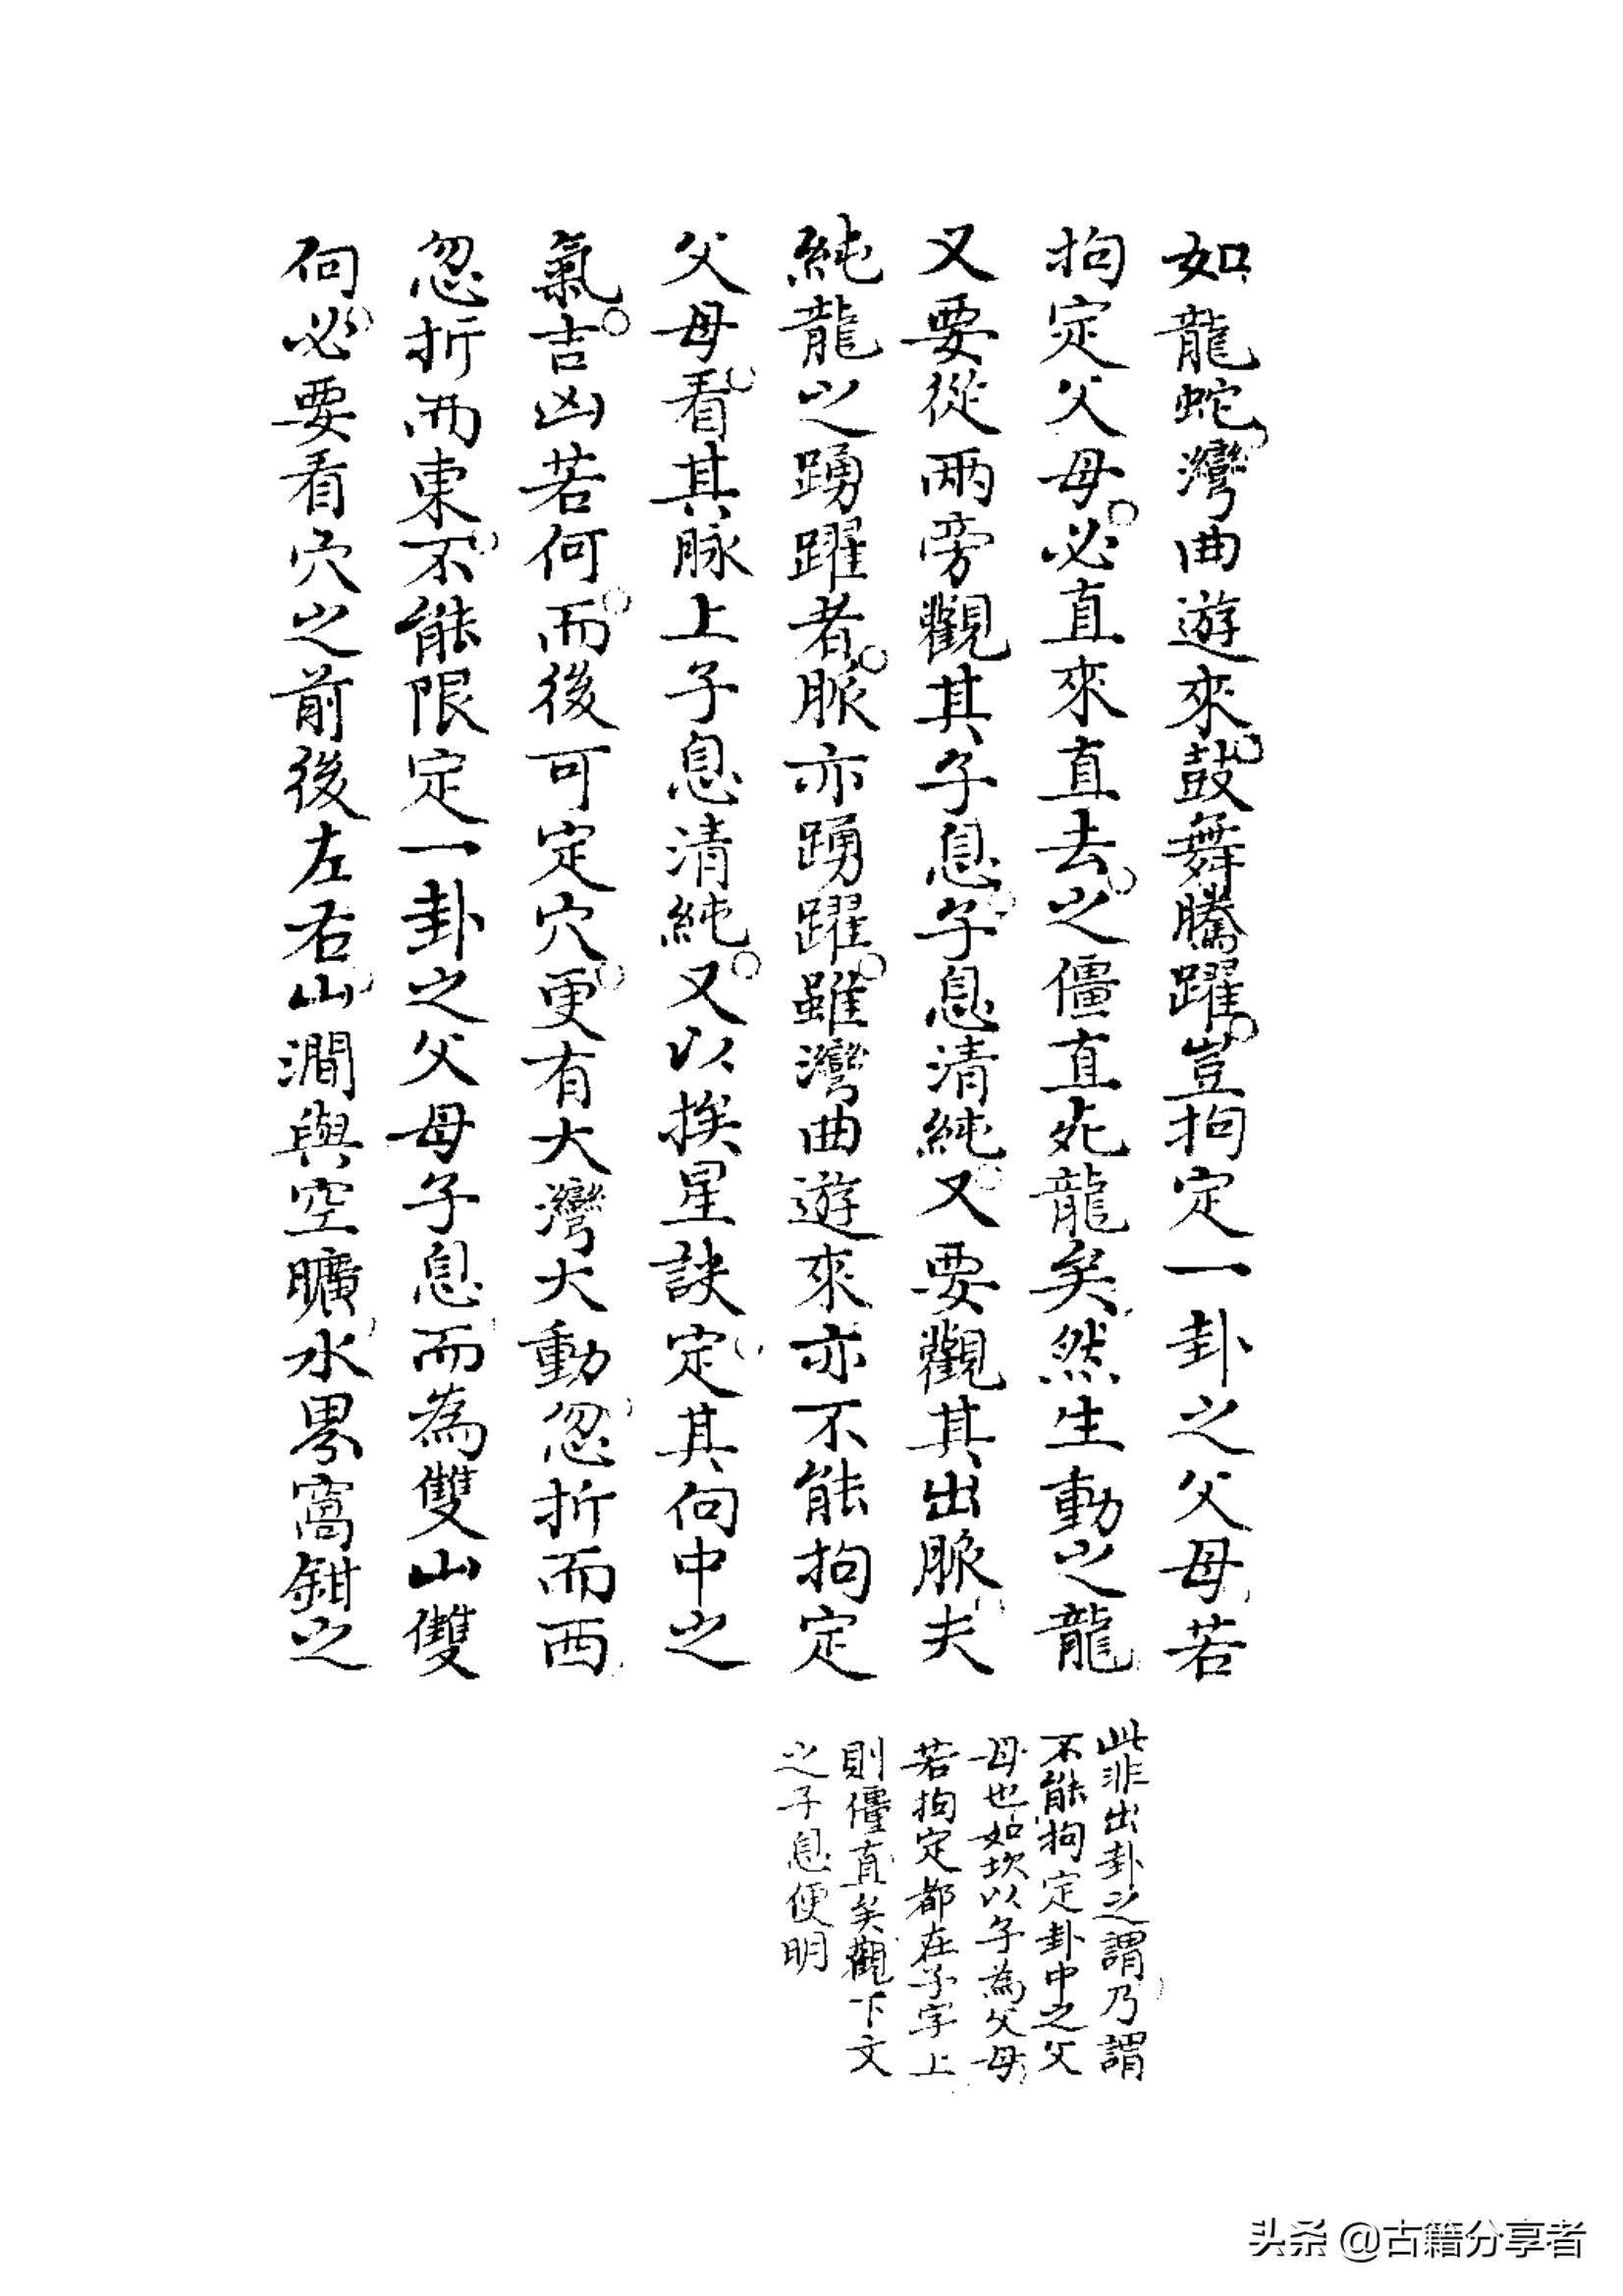 如龍蛇灣曲遊來鼓舞騰躍豈拘定一卦之父母若
拘定父母必直來直去之僵直死龍矣然生動之龍
又要從兩旁觀其子息子息清純又要觀其出脈夫
純龍之踴躍者脈亦踴躍雖灣曲遊來亦不能拘定
父母看其脉上子息清純又以挨星訣定其向中之
氣吉凶若何而後可定穴更有大灣大動忽折而西
忽折而東不能限定一卦之父母子息而為雙山雙
向必要看穴之前後左右山澗與空曠水界窩鉗之
此非出卦之謂乃謂
不能拘定卦中之父
母也如坎以子為父母
若拘定都在子字上
則僵直矣觀下文
之子息便明
头条 @古籍分享者